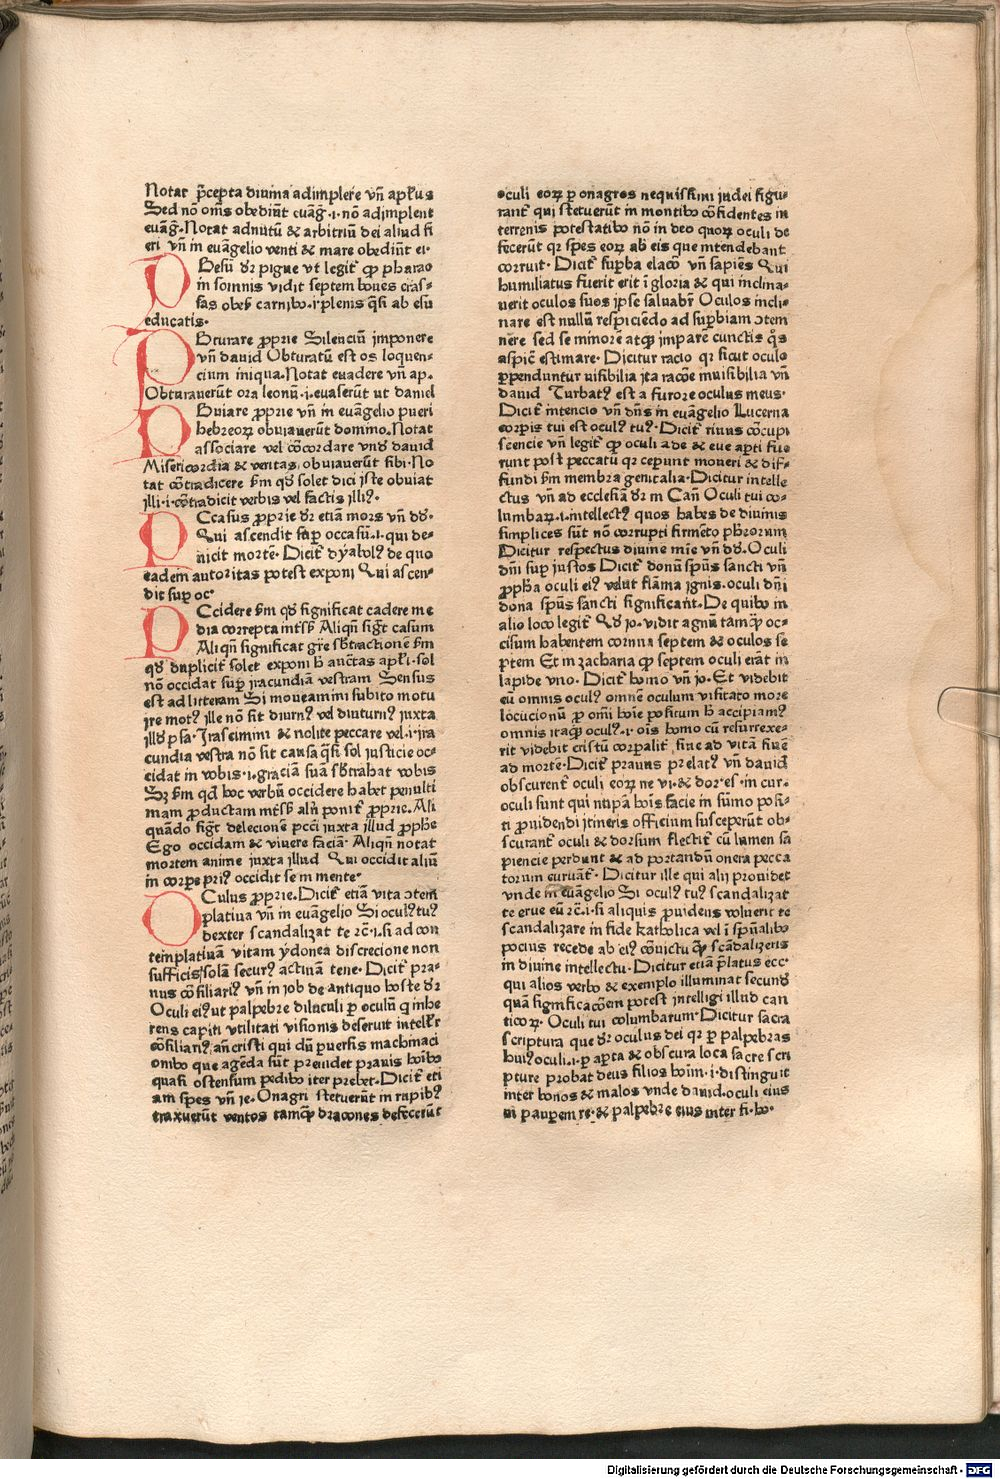 Notat p̄cepta diuina adimplere vñ apl'us
Sed nō om̄s obediūt euāg̃.i. nō adimplent
euāg̃. Notat adnutū & arbitriū dei aliud fi
eri vñ in euāgelio venti & mare obediūt ei.
P Besū dr̄ pigue vt legit' qꝫ pharao
in somnis vidit septem boues cras-
sas obes̄ carnibꝰ. i. plenis q̄si ab esu
educatis.
P Bturare ꝓprie Silenciū imponere
vñ dauid Obturatū est os loquen-
cium iniqua. Notat euadere vñ ap.
Obturauerūt ora leonū.i. euaserūt ut daniel
P Buiare ꝓprie vñ in euāgelio pueri
hebreoꝝ obuiauerūt domino. Notat
associare vel cōcordare vnd' dauid
Misericordia & veritas, obuiauerūt sibi. No
tat cōtradicere sm̄ qd' solet dici iste obuiat
illi.i. cōtradicit verbis vel factis illiꝰ.
P Ccasus ꝓprie dr̄ etiā mors vñ dd'.
Qui ascendit sup̄ occasū.i. qui de-
uicit mortē. Dicit' dyabolꝰ de quo
eadem autoritas potest exponi Qui ascen-
dit sup̄ oc'
P Ccidere sm̄ qd' significat cadere me
dia correpta mts̄b Aliqñ sig̃t casum
Aliqñ significat gr̄e sb̄tractionē sm̄
qd' duplicit' solet exponi h̄ auct̄as apl'i. sol
nō occidat sup̄ iracundiā vestram Sensus
est ad litteram Si moueamini subito motu
ire motꝰ ille nō sit diurnꝰ vel diuturnꝰ iuxta
illd' psa. Irascimini & nolite peccare vel.i. ira
cundia vestra nō sit causa q̄si sol iusticie oc-
cidat in vobis.i. graciam suā sb̄trahat vobis
Sꝫ sm̄ qd̄ hoc verbū occidere habet penulti
mam ꝓductam mts̄b alñ ponit' ꝓprie. Ali
quādo fig̃t delecionē pcci iuxta illud ꝓphē
Ego occidam & viuere faciā. Aliqñ notat
mortem anime iuxta illud Qui occidit aliū
in corpe priꝰ occidit se in mente.
O Culus ꝓprie. Dicit' etiā vita ↄtem
platiua vñ in euāgelio Si oculꝰ tuꝰ
dexter scandalizat te rc̄.i. si ad con
templatiuā vitam ydonea discrecione non
sufficis, solā securꝰ actiuā tene. Dicit' pra-
uus cōsiliariꝰ vñ in iob de antiquo hoste dr̄
Oculi eiꝰ ut palpebre diluculi p oculū q̄ inhe
rens capiti vtilitati visionis deseruit intell'r
cōsiliariꝰ, an̄cristi qui dū puersis machinaci
onibꝰ que agēda sūt preuidet prauis hoī̄bꝰ
quasi ostensum pedibꝰ iter prebet. Dicit' eti
am spes vñ ie. Onagri steterūt in rupibꝰ
traxuerūt ventos tamqꝫ dracones defecerūt
oculi eoꝝ p onagros nequissimi iudei figu-
rant' qui steterūt in montibꝰ cōfidentes in
terrenis potestatibꝰ nō in deo quoꝝ oculi de
fecerūt qr spes eoꝝ ab eis que intendebant
corruit. Dicit' supba elacō vñ sapiēs Qui
humiliatus fuerit erit ī gloria & qui inclina-
uerit oculos suos ipse saluabr̄ Oculos incli-
nare est nullū respiciēdo ad supbiam ↄtem
nere sed se minorē atqꝫ impare cunctis q̄s
aspic̄ estimare. Dicitur racio qr sicut oculo
ppenduntur uisibilia ita racōe inuisibilia vñ
dauid Turbatꝰ est a furore oculus meus.
Dicit' intencio vñ dn̄s in euāgelio Lucerna
corpis tui est oculꝰ tuꝰ. Dicit' riuus cōcupi
scencie vñ legit' qꝫ oculi ade & eue apti fue
runt post peccatū qr ceperunt moueri & dif-
fundi sm̄ membra genitalia. Dicitur intelle
ctus vñ ad ecclesiā dr̄ in Can̄ Oculi tui co-
lumbaꝝ.i. intellectꝰ quos habes de diuinis
simplices sūt nō corrupti firmēto phōrorum
Dicitur respectus diuine mīe vñ dd'. Oculi
dn̄i sup iustos Dicit' donū spūs sancti vñ
ꝓpha oculi eiꝰ velut flāma ignis. oculi dn̄i
dona spūs sancti significant. De quibꝰ in
alio loco legit' Qd' io. vidit agnū tāmqꝫ oc-
cisum habentem cornua septem & oculos se
ptem Et in zacharia qꝫ septem oculi erāt in
lapide vno. Dicit' homo vñ io. Et videbit
eū omnis oculꝰ omnē oculum visitato more
locucionū ꝓ omī hoīe positum h̄ accipiamꝰ
omnis itaqꝫ oculꝰ.i. oīs homo cū resurrexe-
rit videbit cristū corpalit' siue ad vitā siue
ad mortē. Dicit' prauus prelatꝰ vñ dauid
obscurent' oculi eoꝝ ne vi. & dor. es. in cur.
oculi sunt qui n̄ūpā hoīs facie in sūmo posi-
ti ꝓuidendi itineris officium susceperūt ob-
scurant' oculi & dorsum flectit' cū lumen sa
piencie perdunt & ad portandū onera pecca
torum curuāt'. Dicitur ille qui alij prouidet
vnde in euāgelio Si oculꝰ tuꝰ scandalizat
te erue eū rc̄.i. si aliquis ꝓuidens voluerit te
scandalizare in fide katholica vel ī spūalibꝰ
pocius recede ab eiꝰ cōuictu qꝫ scādalizeris
in diuine intellectu. Dicitur etiā p̄latus ecc̄.
qui alios verbo & exemplo illuminat secund'
quā significacōem potest intelligi illud can
ticoꝝ. Oculi tui columbarum. Dicitur sacra
scriptura que dr̄ oculus dei qr p palpebras
huiꝰ oculi.i. p apta & obscura loca sacre scri
pture probat deus filios hoīm.i. distinguit
inter bonos & malos vnde dauid. oculi eius
in paupem re. & palpebre eius inter fi. ho.
Digitalisierung gefördert durch die Deutsche Forschungsgemeinschaft - DFG